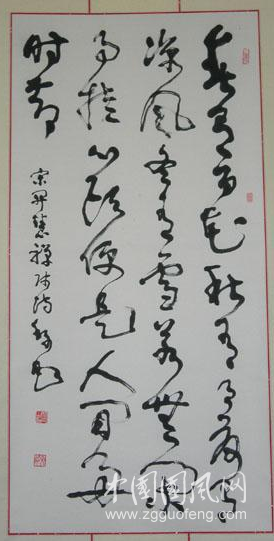 春有百花秋有月夏有
凉风冬有雪若無閒
事挂心头便是人间好
时节
宋开慧禅师诗
中国国风网
www.zgguofeng.com